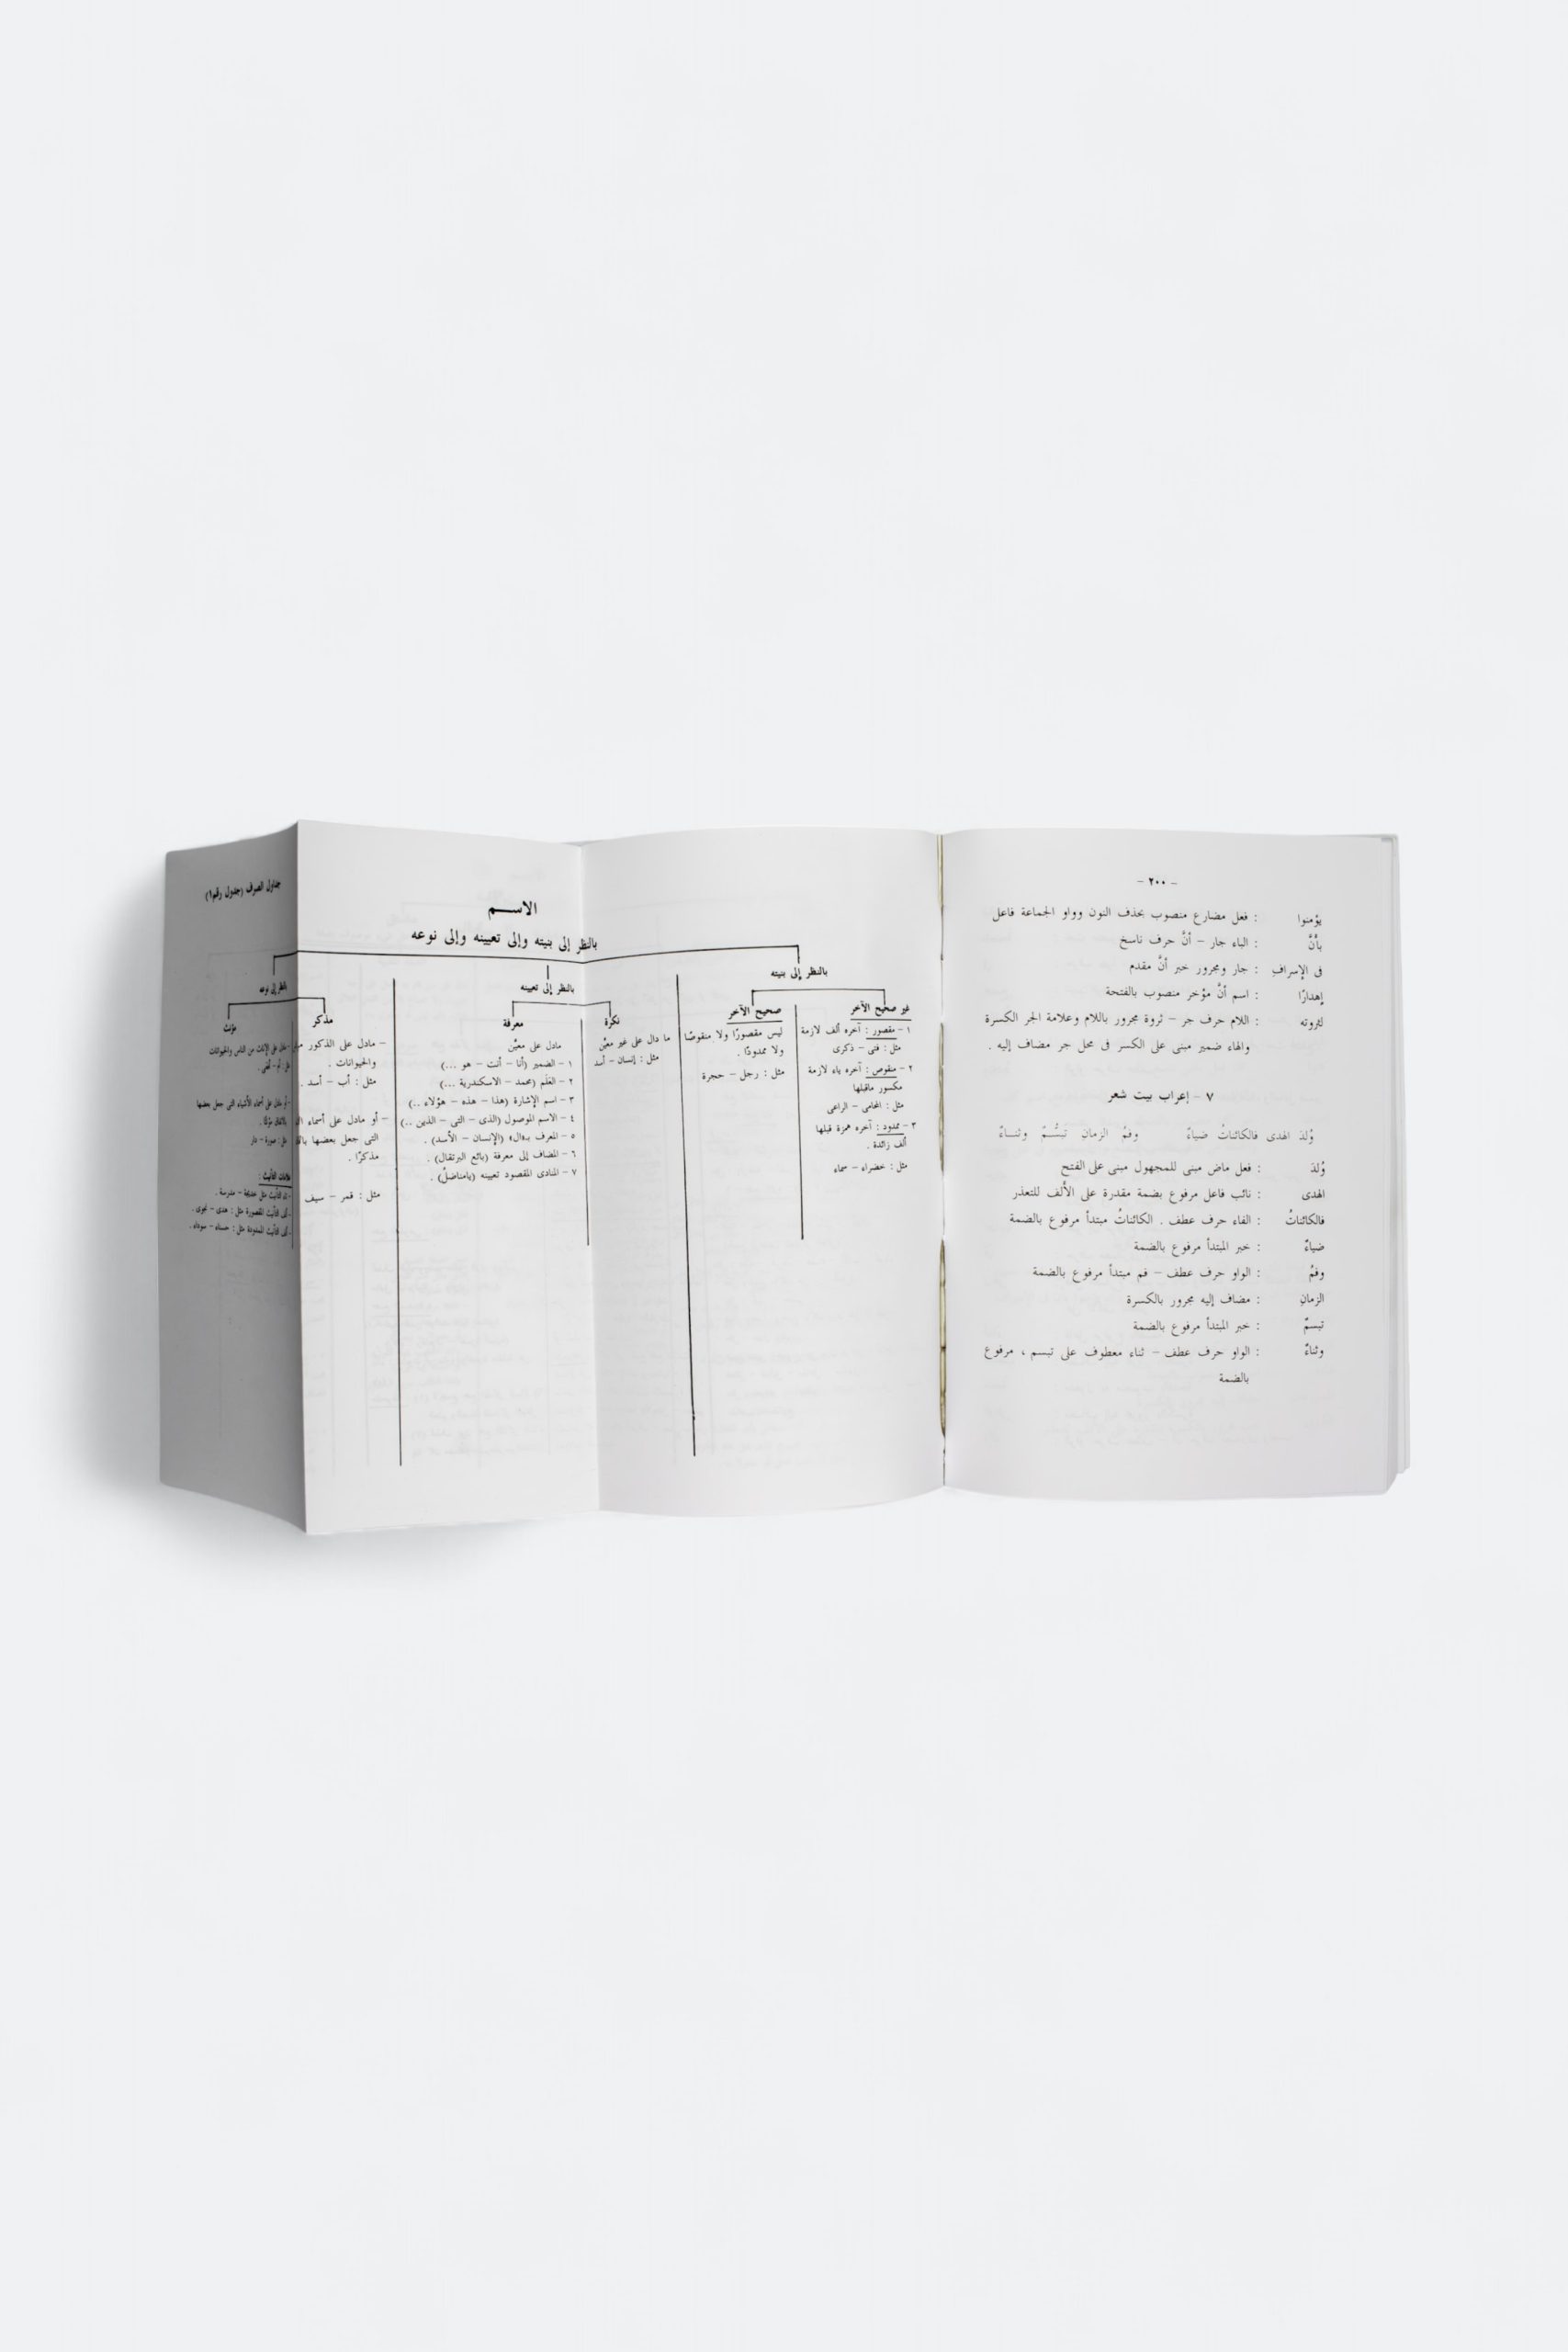 - ٢٠٠ -
يؤمنوا : فعل مضارع منصوب بحذف النون وواو الجماعة فاعل
بأنَّ : الباء جار - أنَّ حرف ناسخ
فى الإسرافِ : جار ومجرور خبر أنَّ مقدم
إهدارًا : اسم أنَّ مؤخر منصوب بالفتحة
لثروته : اللام حرف جر - ثروة مجرور باللام وعلامة الجر الكسرة
والهاء ضمير مبنى على الكسر فى محل جر مضاف إليه .
٧ - إعراب بيت شعر
وُلدَ الهدى فالكائناتُ ضياءٌ وفمُ الزمانِ تَبسُّمٌ وثناءٌ
وُلدَ : فعل ماض مبنى للمجهول مبنى على الفتح
الهدى : نائب فاعل مرفوع بضمة مقدرة على الألف للتعذر
فالكائناتُ : الفاء حرف عطف . الكائناتُ مبتدأ مرفوع بالضمة
ضياءٌ : خبر المبتدأ مرفوع بالضمة
وفمُ : الواو حرف عطف - فم مبتدأ مرفوع بالضمة
الزمانِ : مضاف إليه مجرور بالكسرة
تبسمٌ : خبر المبتدأ مرفوع بالضمة
وثناءٌ : الواو حرف عطف - ثناء معطوف على تبسم ، مرفوع
بالضمة
جداول الصرف (جدول رقم ١)
الاســـم
بالنظر إلى بنيته وإلى تعيينه وإلى نوعه
بالنظر إلى بنيته
غير صحيح الآخر
١ - مقصور : آخره ألف لازمة
مثل : فتى - ذكرى
٢ - منقوص : آخره ياء لازمة
مكسور ماقبلها
مثل : المحامى - الراعى
٣ - ممدود : آخره همزة قبلها
ألف زائدة .
مثل : خضراء - سماء
صحيح الآخر
ليس مقصورًا ولا منقوصًا
ولا ممدودًا .
مثل : رجل - حجرة
بالنظر إلى تعيينه
نكرة
ما دال على غير معيَّن
مثل : إنسان - أسد
معرفة
مادل على معيَّن
١ - الضمير (أنا - أنت - هو ...)
٢ - العَلَم (محمد - الاسكندرية ...)
٣ - اسم الإشارة (هذا - هذه - هؤلاء ..)
٤ - الاسم الموصول (الذى - التى - الذين ..)
٥ - المعرف بـ«ال» (الإنسان - الأسد) .
٦ - المضاف إلى معرفة (بائع البرتقال) .
٧ - المنادى المقصود تعيينه (يامناضلُ) .
بالنظر إلى نوعه
مذكر
- مادل على الذكور
والحيوانات .
مثل : أب - أسد .
- أو مادل على أسماء
التى جعل بعضها
مذكرًا .
مثل : قمر - سيف
مؤنث
- مادل على الإناث من الناس والحيوانات
مثل : أم - أنثى .
- أو مادل على أسماء الأشياء التى جعل بعضها
بالاتفاق مؤنثًا .
مثل : صورة - دار
علامات التأنيث :
- تاء التأنيث مثل خديجة - مدرسة .
- ألف التأنيث المقصورة مثل : هدى - نجوى .
- ألف التأنيث الممدودة مثل : حسناء - سوداء .